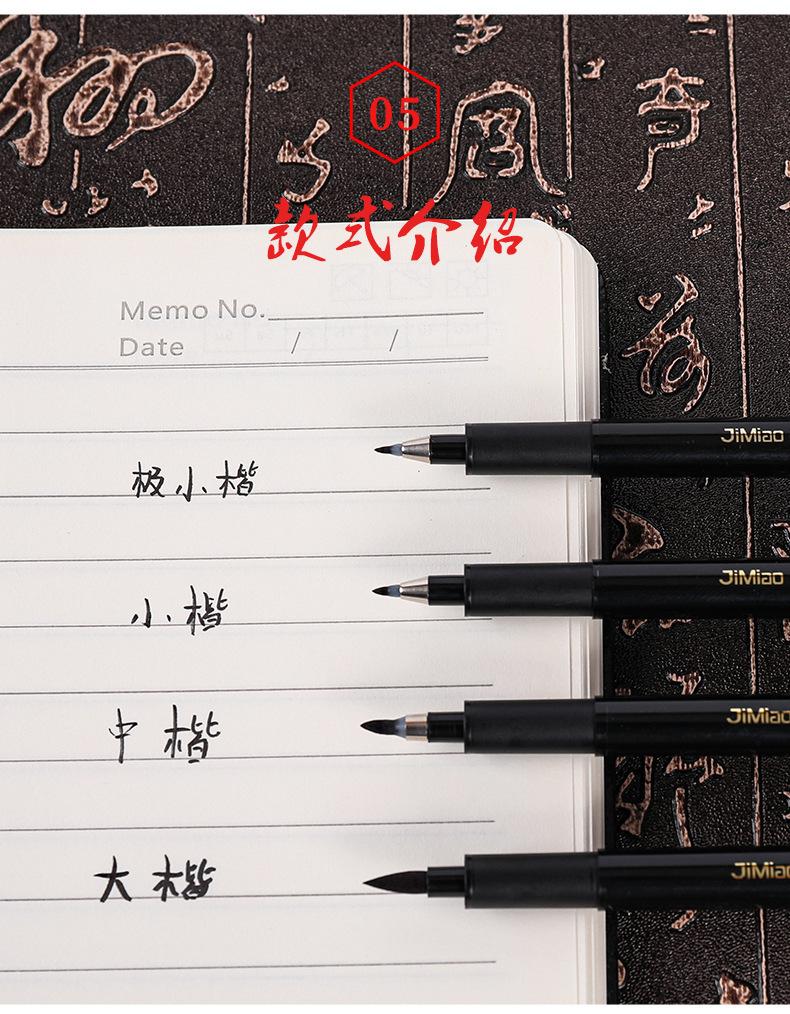 05
款式介绍
Memo No.
Date / /
JiMiao
极小楷
JiMiao
小楷
JiMiao
中楷
JiMiao
大楷